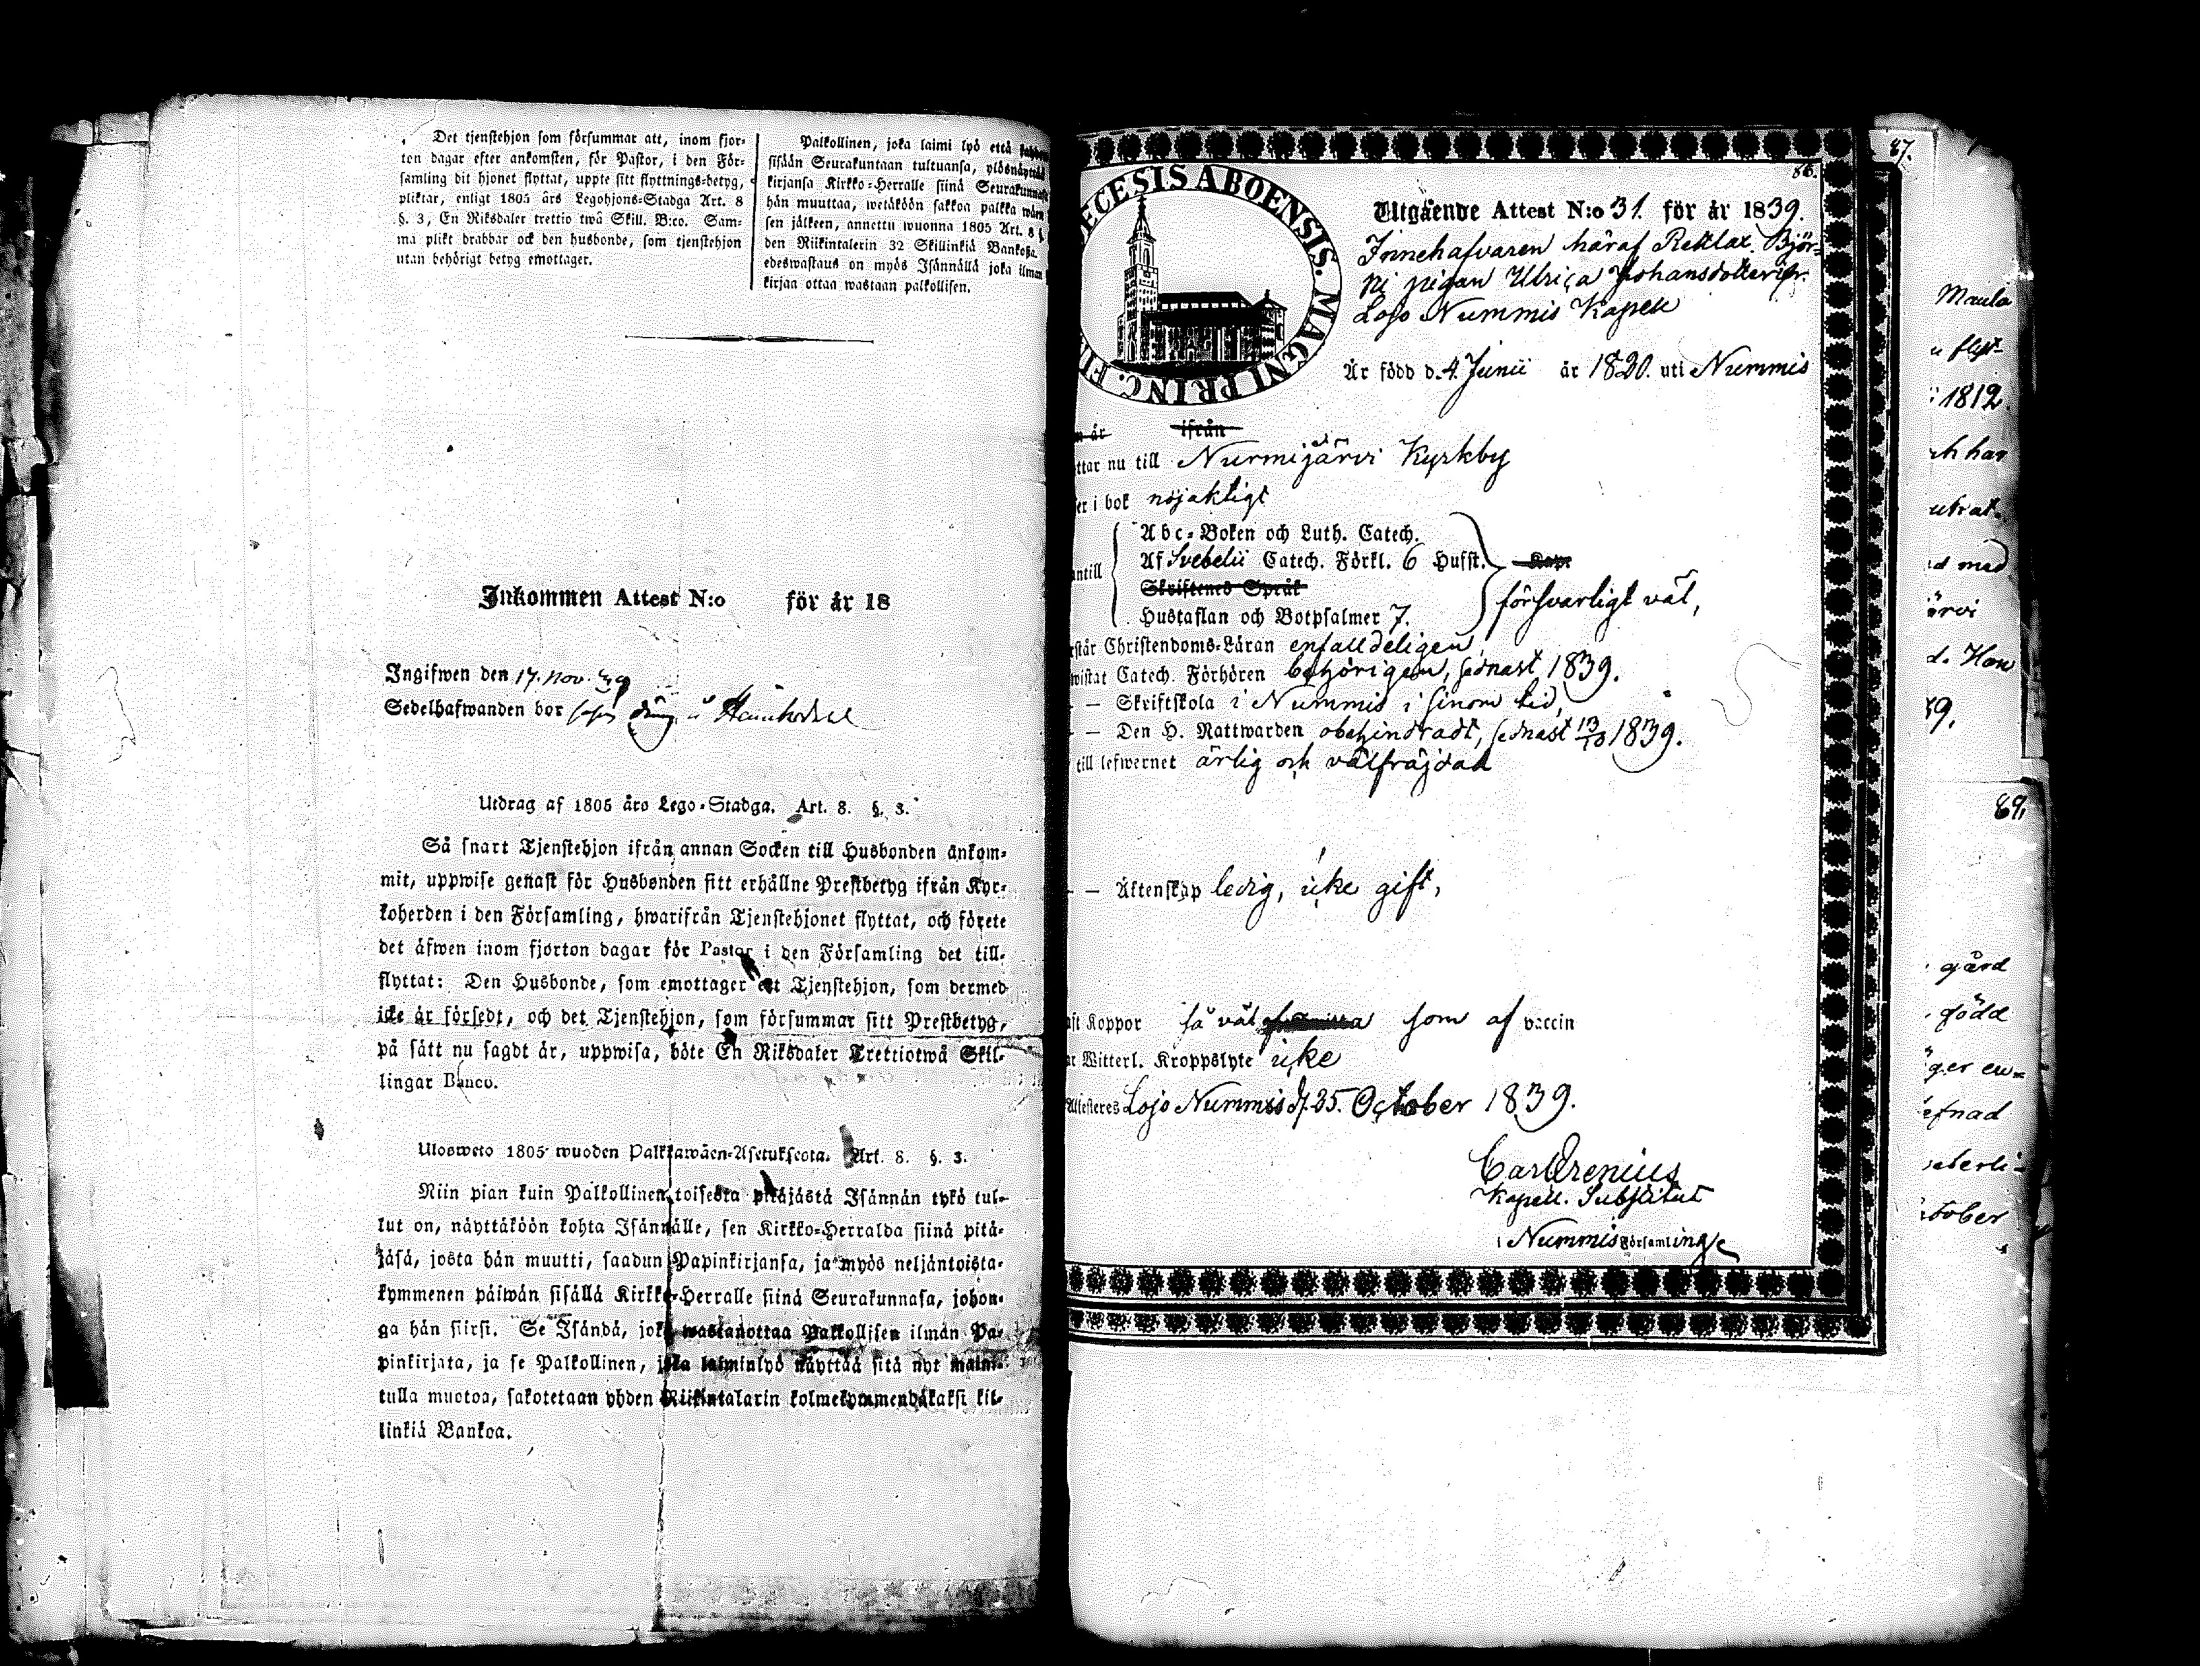 Det tjenstehjon som försummar att, inom fjor-
ton dagar efter ankomsten, för Pastor, i den För-
samling dit hjonet flyttat, uppte sitt flyttnings-betyg,
pliktar, enligt 1805 års Legohjons-Stadga Art. 8
§. 3, En Riksdaler trettio twå Skill. B:co. Sam-
ma plikt drabbar ock den husbonde, som tjenstehjon
utan behörigt betyg emottager.
Palkollinen, joka laimi lyö että
sisään Seurakuntaan tultuansa, ylösnäyttää
kirjansa Kirkko-Herralle siinä Seurakunnasa
hän muuttaa, wetäköön sakkoa palkka wäen
sen jälkeen, annettu wuonna 1805 Art. 8 §.
den Riikintalerin 32 Skillinkiä Bankosa.
edeswastaus on myös Isännällä joka ilman
kirjaa ottaa wastaan palkollisen.
Inkommen Attest N:o för år 18
Ingifwen den 17. Nov. 39
Sedelhafwanden bor
Utdrag af 1805 års Lego-Stadga. Art. 8. §. 3.
Så snart Tjenstehjon ifrån annan Socken till Husbonden ankom-
mit, uppwise genast för Husbonden sitt erhållne Prestbetyg ifrån Kyr-
koherden i den Församling, hwarifrån Tjenstehjonet flyttat, och förete
det äfwen inom fjorton dagar för Pastor i den Församling det till-
flyttat: Den Husbonde, som emottager ett Tjenstehjon, som dermed
icke är försedt, och det Tjenstehjon, som försummar sitt Prestbetyg,
på sätt nu sagdt är, uppwisa, böte En Riksdaler Trettiotwå Skil-
lingar Banco.
Ulosweto 1805 wuoden Palkkawäen-Asetuksesta. Art. 8. §. 3.
Niin pian kuin Palkollinen toisesta pitäjästä Isännän tykö tul-
lut on, näyttäköön kohta Isännälle, sen Kirkko-Herralda siinä pitä-
jäsä, josta hän muutti, saadun Papinkirjansa, ja myös neljäntoista-
kymmenen päiwän sisällä Kirkko-Herralle siinä Seurakunnasa, johon-
ga hän siirsi. Se Isändä, joka wastanottaa Palkollisen ilman Pa-
pinkirjata, ja se Palkollinen, joka laiminlyö näyttää sitä nyt maini-
tulla muotoa, sakotetaan yhden Riikintalarin kolmekymmendäkaksi kil-
linkiä Bankoa.
86.
ECESIS ABOENSIS. MAGNI PRINC. FI
Utgående Attest N:o 31. för år 1839.
Innehafvaren häraf Reklax. Björ-
ni pigan Ulrica Johansdotter ifr.
Lojo Nummis Kapell
Är född d. 4. Junii år 1820. uti Nummis
n år ifrån
ttar nu till Nurmijärvi Kyrkby
er i bok nöjaktigt
Abc-Boken och Luth. Catech.
antill Af Svebelii Catech. Förkl. 6 Hufst. Kap.
Skriftenes Språk
Hustaflan och Botpsalmer 7. försvarligt väl,
rstår Christendoms-Läran enfalldeligen,
wistat Catech. Förhören behörigen, sednast 1839.
— Skriftskola i Nummis i sinom tid,
— Den H. Nattwarden obehindradt, sednast 13/10 1839.
till lefwernet ärlig och välfräjdad
— Äktenskap ledig, icke gift,
aft Koppor så väl som af vaccin
ar Witterl. Kroppslyte icke
Attesteres Lojo Nummis d. 25. October 1839.
Carl Orenius
Kapell. Substitut
i Nummis Församlinge
87.
Maula
u flyt-
1812.
ch har
utrat.
d med
ärvi
d. Hon
39.
89.
gård
född
ger en-
efnad
seterli-
ctober